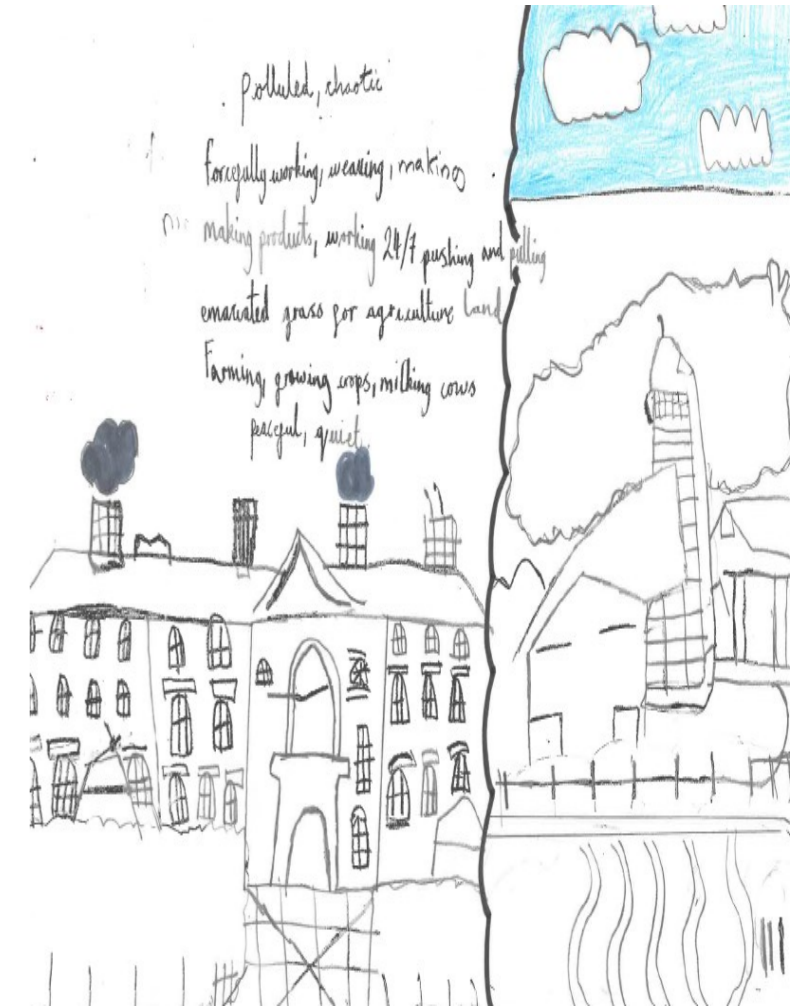 Polluted, chaotic
forcefully working, weaving, making
making products, working 24/7 pushing and pulling
emaciated grass for agriculture land
Farming, growing crops, milking cows
peaceful, quiet